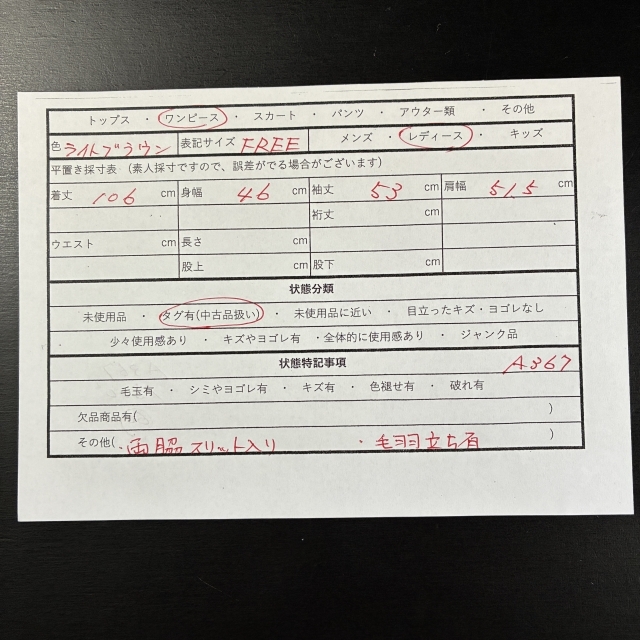 トップス ・ ワンピース ・ スカート ・ パンツ ・ アウター類 ・ その他
色 ライトブラウン 表記サイズ FREE メンズ ・ レディース ・ キッズ
平置き採寸表 (素人採寸ですので、誤差がでる場合がございます)
着丈 106 cm 身幅 46 cm 袖丈 53 cm 肩幅 51.5 cm
裄丈 cm
ウエスト cm 長さ cm
股上 cm 股下 cm
状態分類
未使用品 ・ タグ有(中古品扱い) ・ 未使用品に近い ・ 目立ったキズ・ヨゴレなし
少々使用感あり ・ キズやヨゴレ有 ・全体的に使用感あり ・ ジャンク品
状態特記事項 A367
毛玉有 ・ シミやヨゴレ有 ・ キズ有 ・ 色褪せ有 ・ 破れ有
欠品商品有( )
その他( ・両脇スリット入り ・毛羽立ち有 )